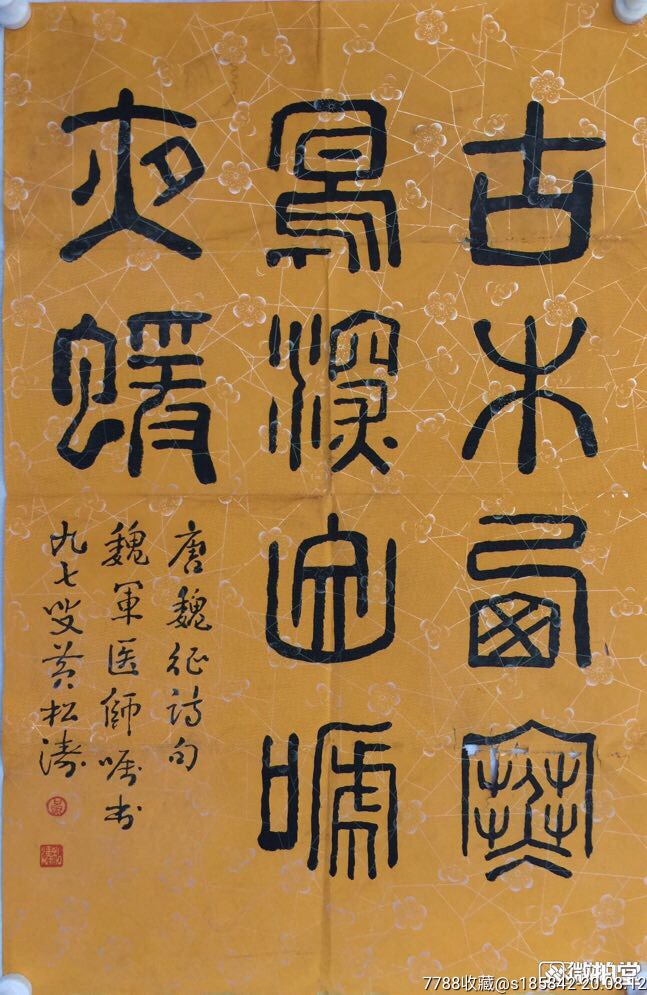 古木西寒
鳥深山嗁
夜蝯
唐魏征诗句
魏軍医師嘱书
九七叟黄松涛
微拍堂
7788收藏@s185842 20.08.12